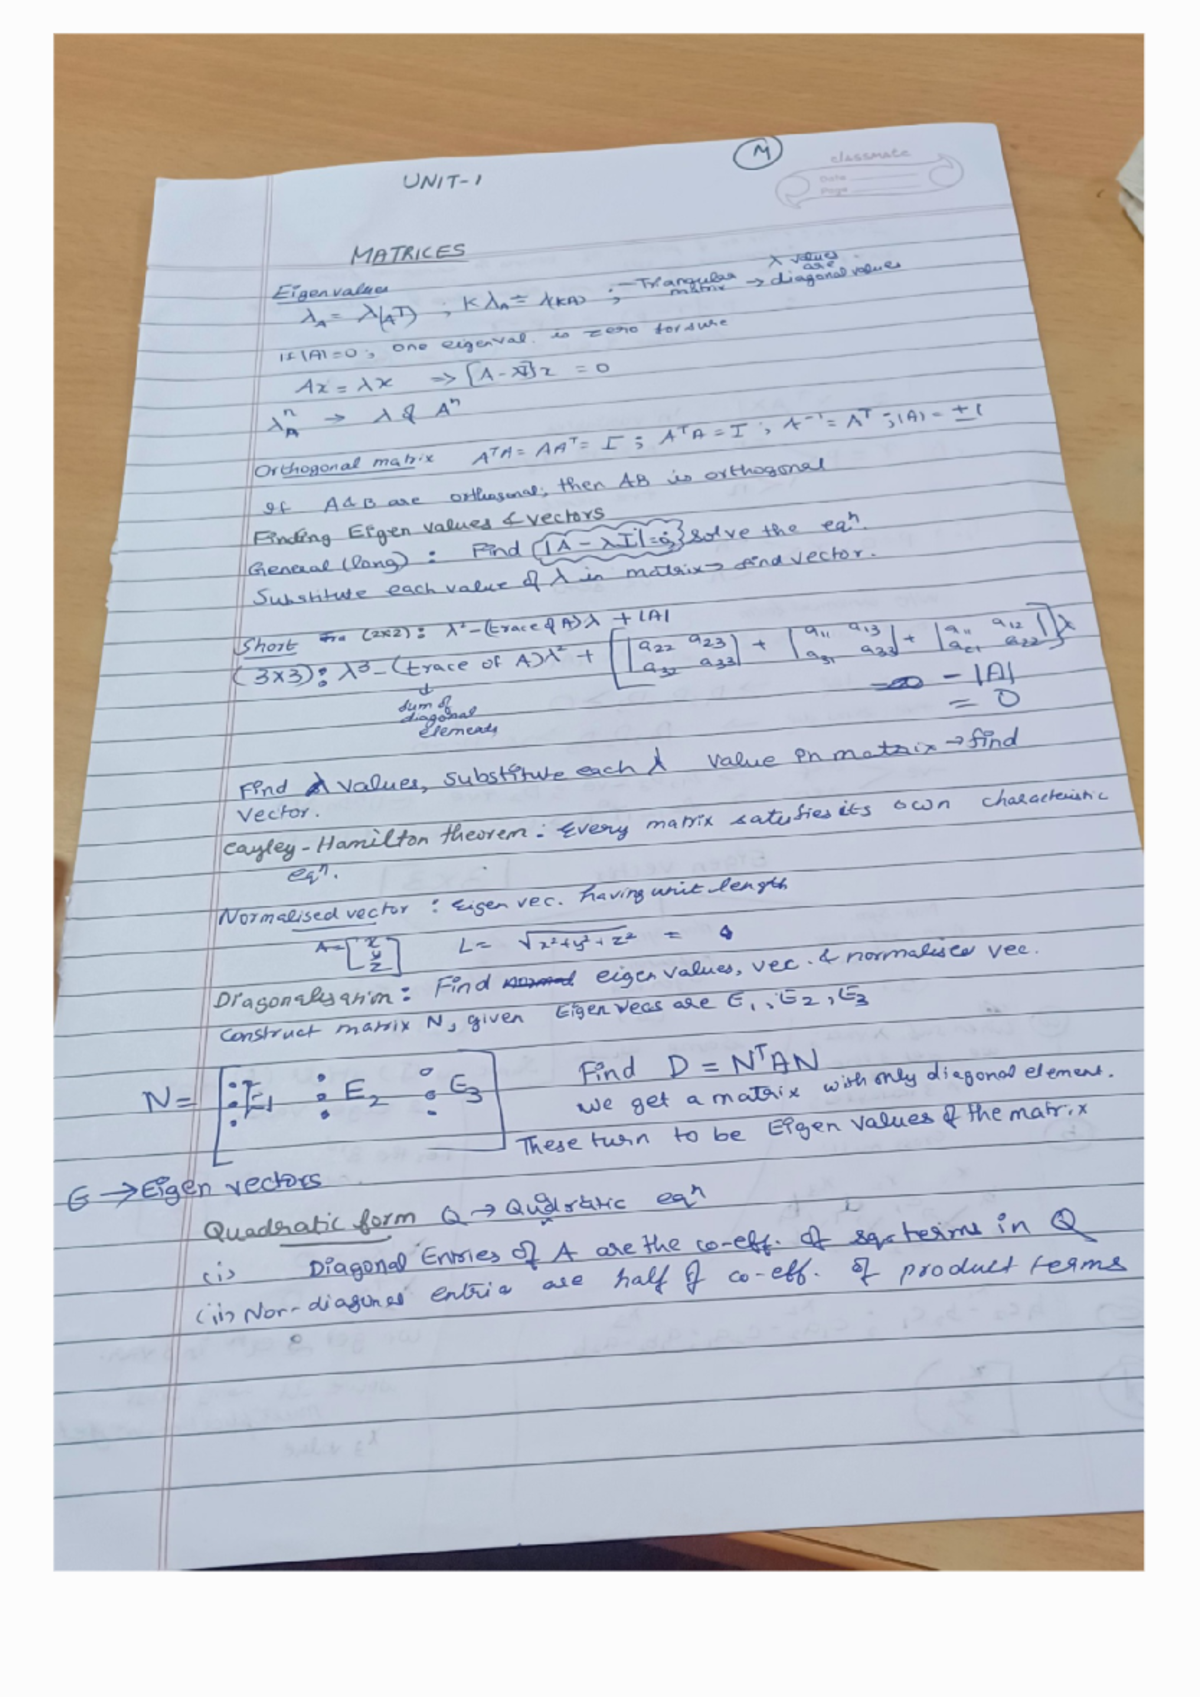 M
classmate
Date
Page
UNIT-1
MATRICES
Eigenvalues
λ_A = λ(A^T) ; Kλ_A = λ(KA) ; - Triangular matrix → λ values are diagonal values
If |A|=0; one eigenval. is zero for sure
Ax = λx => [A-λI]x = 0
λ_A^n → λ of A^n
Orthogonal matrix A^TA = AA^T = I ; A^TA = I ; A^-1 = A^T ; |A| = ±1
If A & B are orthogonal; then AB is orthogonal
Finding Eigen values & vectors
General (long) : Find |A - λI|=0; solve the eq^n.
Substitute each value of λ in matrix → find vector.
Short (2x2): λ² - (trace of A)λ + |A|
(3x3): λ³ - (trace of A)λ² + [|a22 a23 a32 a33| + |a11 a13 a31 a33| + |a11 a12 a21 a22|]λ
- |A|
= 0
↓
sum of
diagonal
elements
Find λ values, substitute each λ value in matrix → find
vector.
Cayley-Hamilton theorem: Every matrix satisfies its own characteristic
eq^n.
Normalised vector : Eigen vec. having unit length
A=[x y z] L = √x²+y²+z² =
Diagonalisation: Find eigen values, vec. & normalised vec.
construct matrix N, given Eigen vecs are E1, E2, E3
N = [: E1 : E2 : E3] Find D = N^TAN
we get a matrix with only diagonal element.
These turn to be Eigen values of the matrix
E → Eigen vectors
Quadratic form Q → Quadratic eq^n
(i) Diagonal Entries of A are the co-eff. of sqr terms in Q
(ii) Non-diagonal entrie are half of co-eff. of product terms